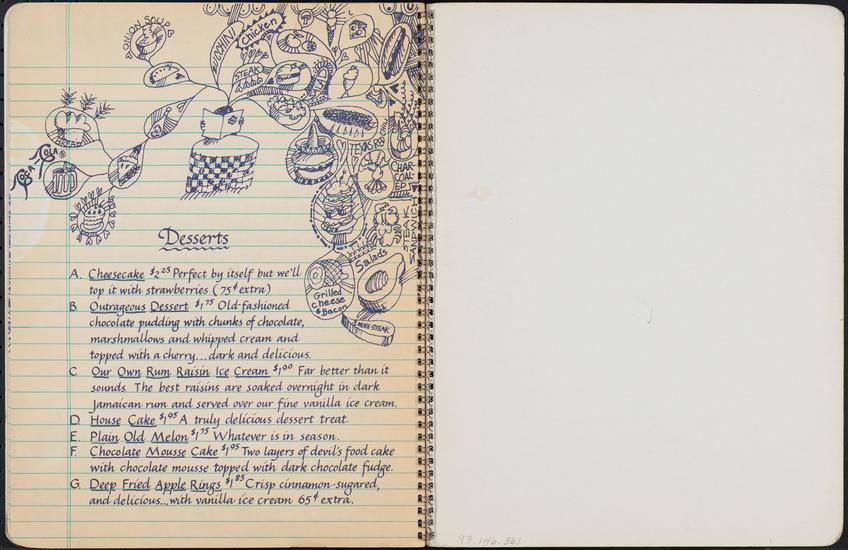 ONION SOUP
ZUCCHINI
Chicken
STEAK
SALAD
BREAD
Coca-Cola®
TEXAS RIB
CHILI
CHAR-
COAL-
ED
STEAK
SANDWICH
Salads
Grilled
cheese
& Bacon
MORE STEAK
Desserts
A. Cheesecake $2.25 Perfect by itself but we'll
top it with strawberries (75¢ extra)
B. Outrageous Dessert $1.75 Old-fashioned
chocolate pudding with chunks of chocolate,
marshmallows and whipped cream and
topped with a cherry...dark and delicious.
C. Our Own Rum Raisin Ice Cream $1.90 Far better than it
sounds. The best raisins are soaked overnight in dark
Jamaican rum and served over our fine vanilla ice cream.
D. House Cake $1.95 A truly delicious dessert treat.
E. Plain Old Melon $1.75 Whatever is in season.
F. Chocolate Mousse Cake $1.95 Two layers of devil's food cake
with chocolate mousse topped with dark chocolate fudge.
G. Deep Fried Apple Rings $1.85 Crisp cinnamon-sugared,
and delicious...with vanilla ice cream 65¢ extra.
97.146.361